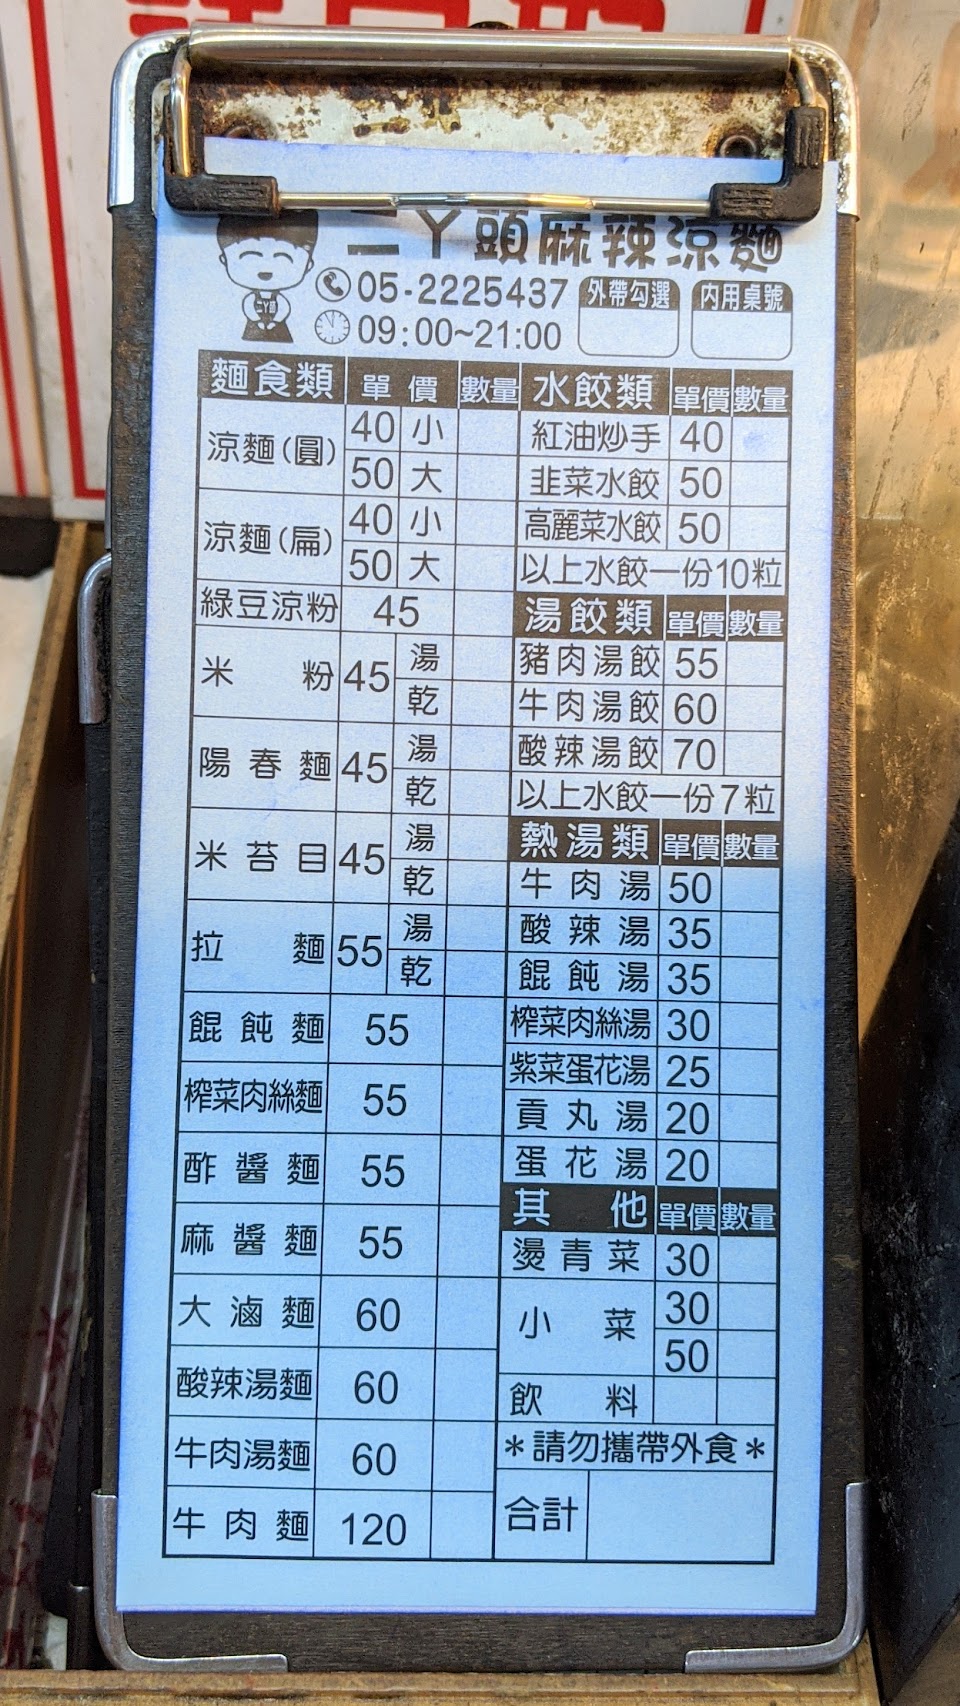 二丫頭麻辣涼麵
05-2225437
09:00~21:00
外帶勾選
內用桌號
二丫頭
麵食類 單價 數量
涼麵(圓) 40 小
50 大
涼麵(扁) 40 小
50 大
綠豆涼粉 45
米粉 45 湯
乾
陽春麵 45 湯
乾
米苔目 45 湯
乾
拉麵 55 湯
乾
餛飩麵 55
榨菜肉絲麵 55
酢醬麵 55
麻醬麵 55
大滷麵 60
酸辣湯麵 60
牛肉湯麵 60
牛肉麵 120
水餃類 單價 數量
紅油炒手 40
韭菜水餃 50
高麗菜水餃 50
以上水餃一份10粒
湯餃類 單價 數量
豬肉湯餃 55
牛肉湯餃 60
酸辣湯餃 70
以上水餃一份7粒
熱湯類 單價 數量
牛肉湯 50
酸辣湯 35
餛飩湯 35
榨菜肉絲湯 30
紫菜蛋花湯 25
貢丸湯 20
蛋花湯 20
其他 單價 數量
燙青菜 30
小菜 30
50
飲料
*請勿攜帶外食*
合計